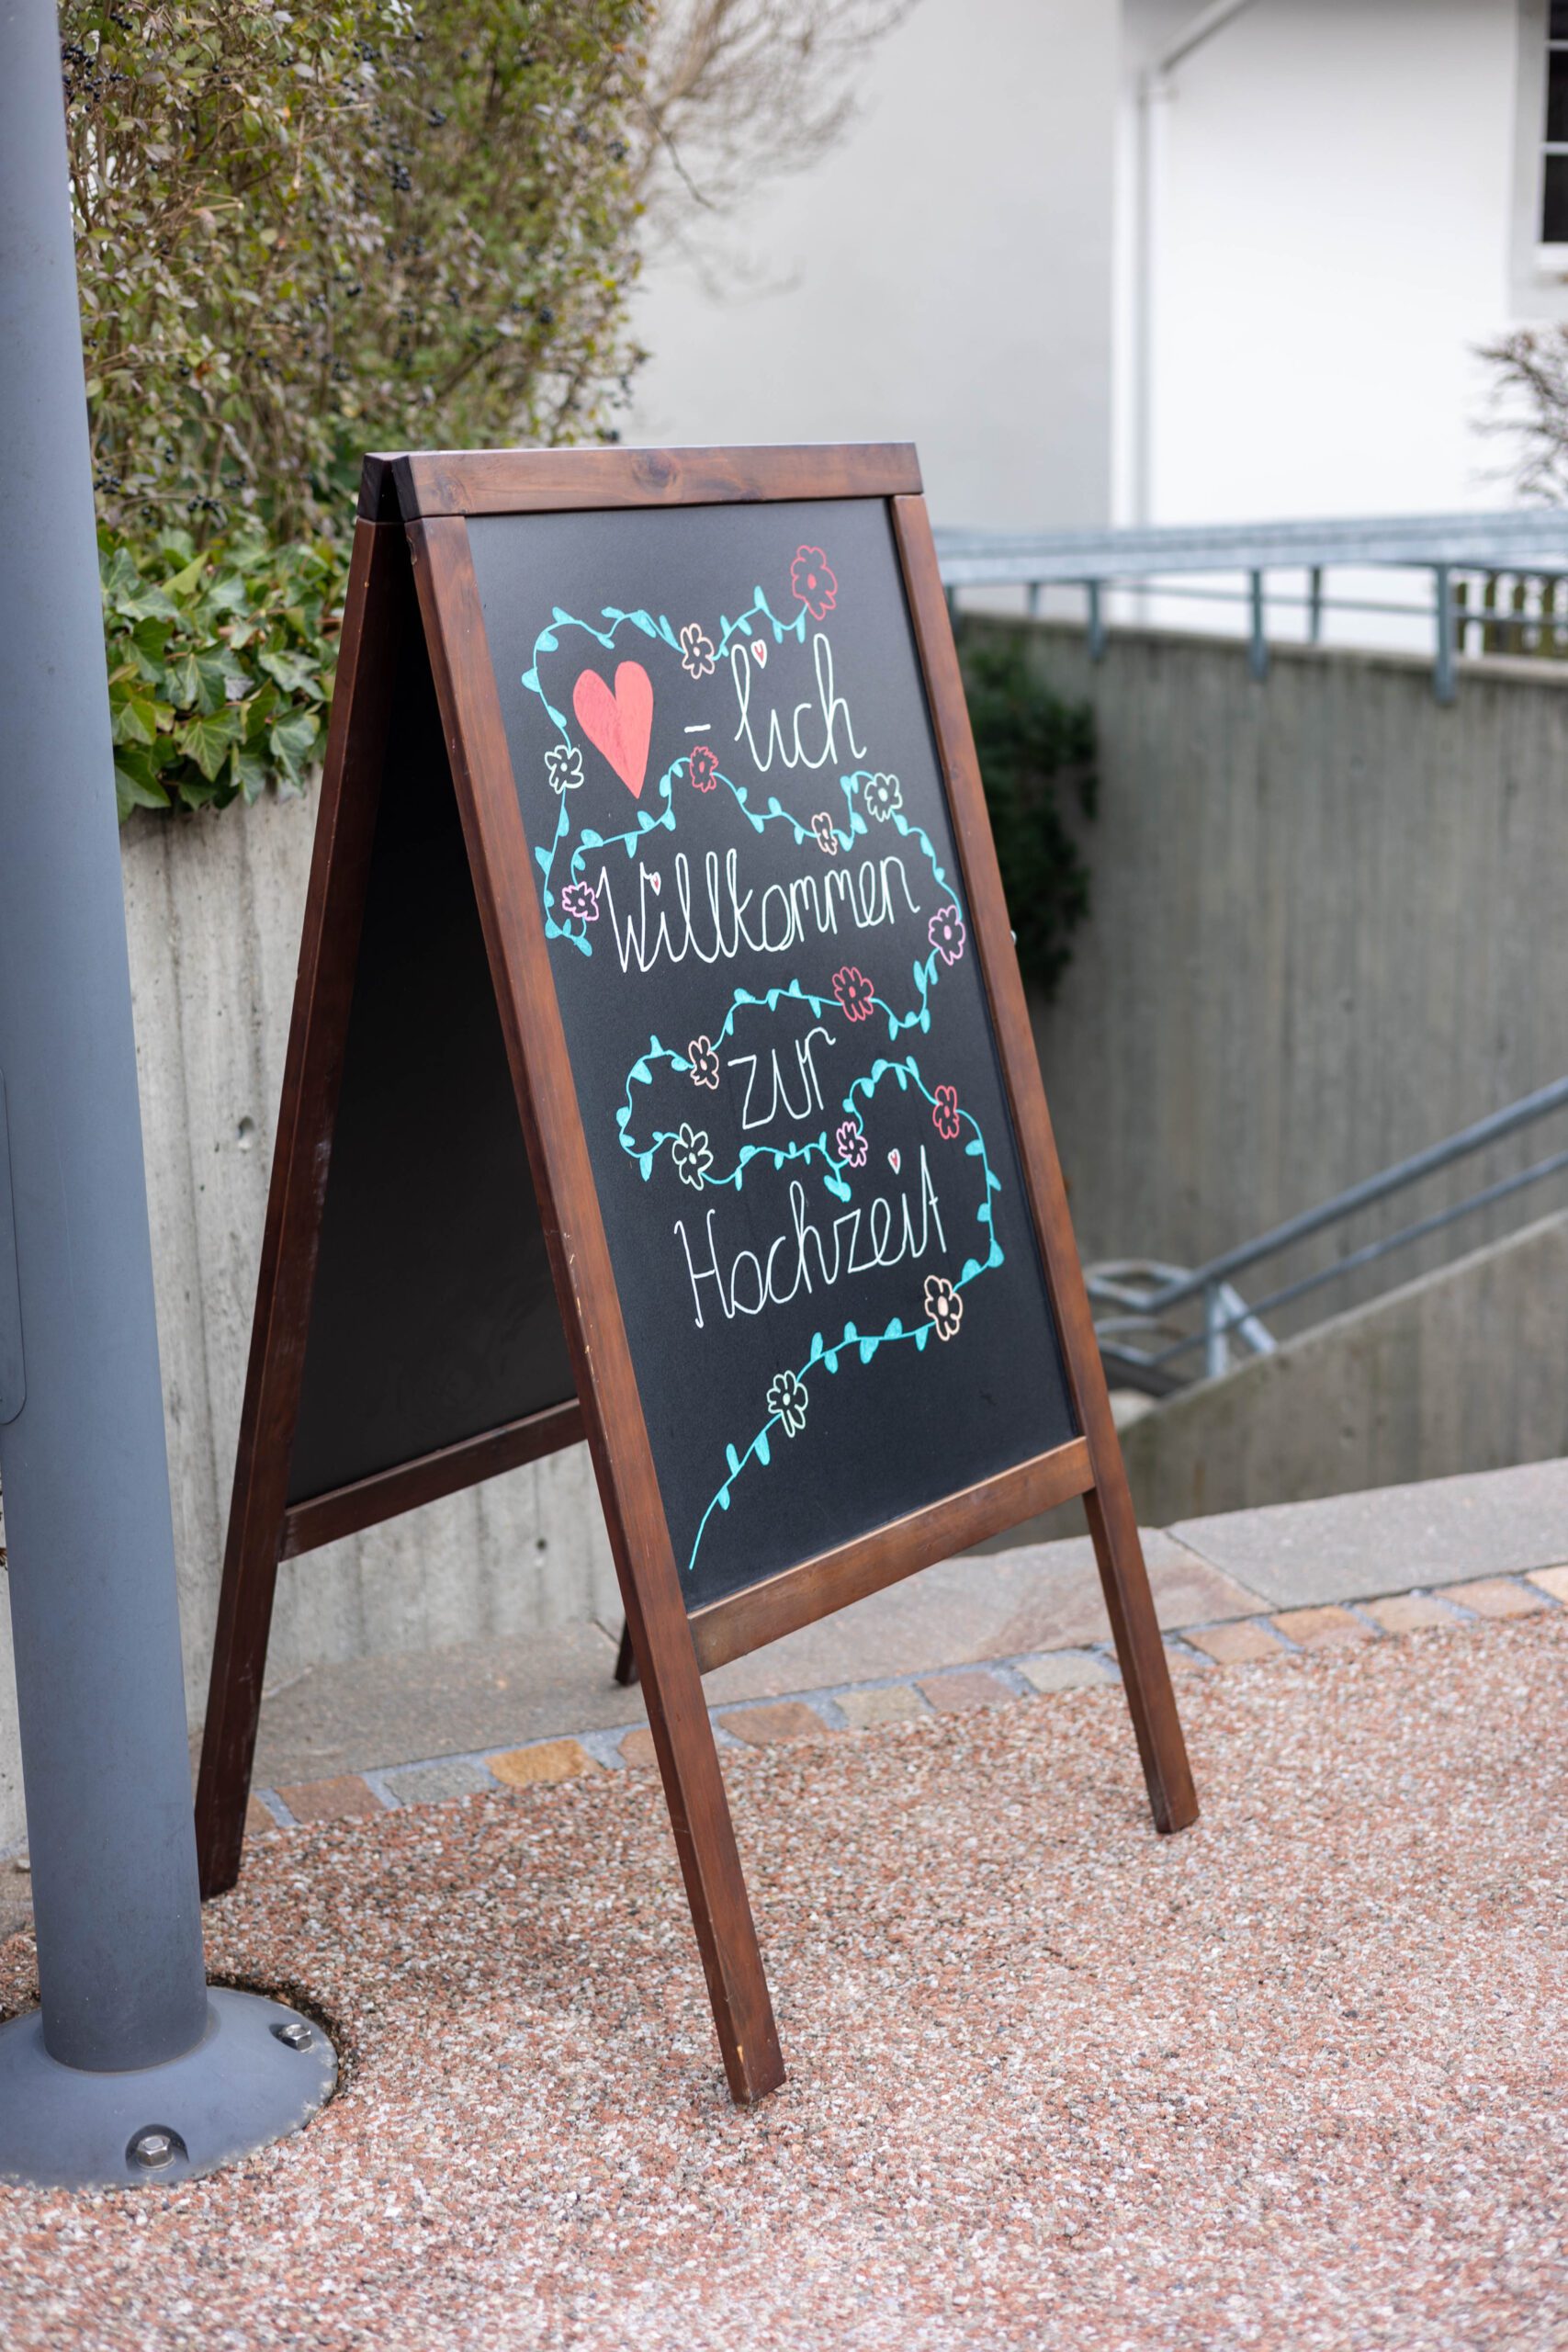 ❤-lich
Willkommen
zur
Hochzeit